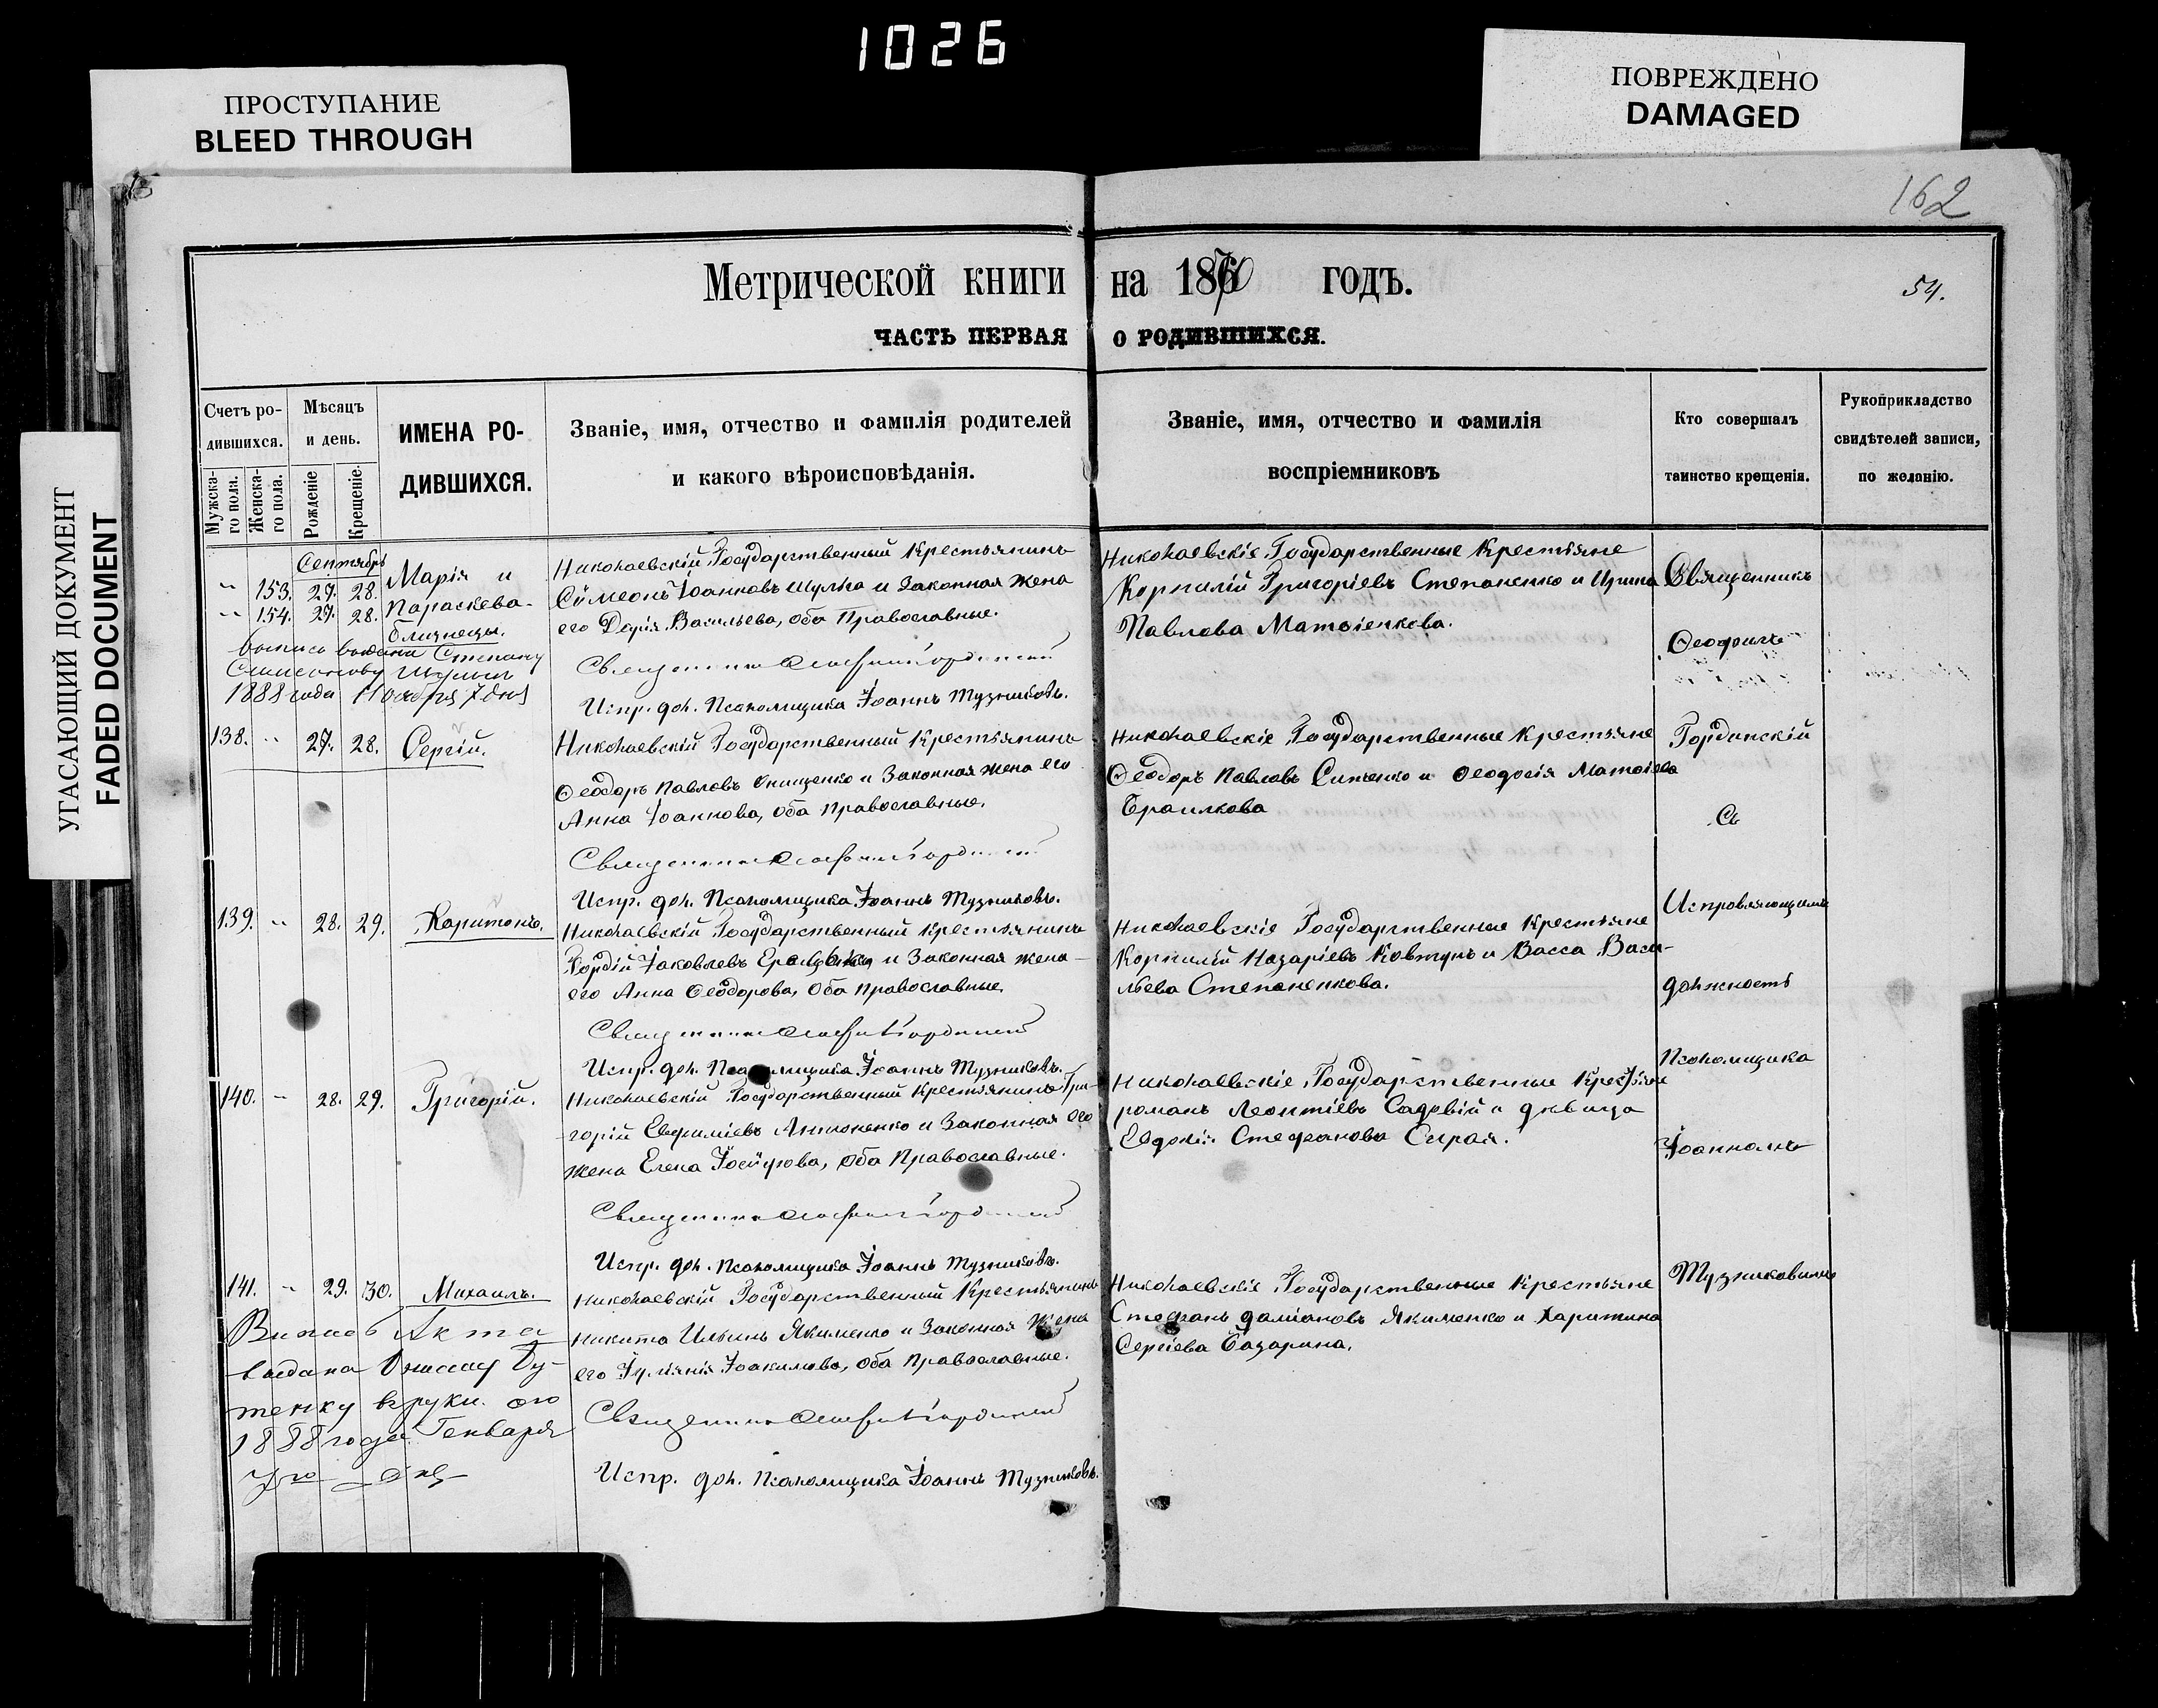 1026
ПРОСТУПАНИЕ
BLEED THROUGH
ПОВРЕЖДЕНО
DAMAGED
УГАСАЮЩИЙ ДОКУМЕНТ
FADED DOCUMENT
162
Метрической книги на 1870 годъ.
54.
ЧАСТЬ ПЕРВАЯ О РОДИВШИХСЯ.
Счетъ ро-
дившихся.
Мужска-
го пола.
Женска-
го пола.
Мѣсяцъ
и день.
Рожденіе
Крещеніе.
ИМЕНА РО-
ДИВШИХСЯ.
Званіе, имя, отчество и фамилія родителей
и какого вѣроисповѣданія.
Званіе, имя, отчество и фамилія
воспріемниковъ
Кто совершалъ
таинство крещенія.
Рукоприкладство
свидѣтелей записи,
по желанію.
Сентябрь
153. 27. 28. Марія и
154. 27. 28. Параскева
близнецы.
Николаевскій Государственный Крестьянинъ
Сѵмеонъ Іоанновъ Шулька и Законная жена
его Дарія Васильева, оба Православные.
Испр. дол. Псаломщика Іоаннъ Тузниковъ.
Николаевскіе Государственные Крестьяне
Корнилій Григоріевъ Степаненко и Ирина
Павлова Матвіенкова.
выпись выдана Степану
1888 года
138. 27. 28. Сергій.
Николаевскій Государственный Крестьянинъ
Ѳеодоръ Павловъ Онищенко и Законная жена его
Анна Іоаннова, оба Православные.
Испр. дол. Псаломщика Іоаннъ Тузниковъ.
Николаевскіе Государственные Крестьяне
Ѳеодоръ Павловъ и Ѳеодосія
Браилкова
139. 28. 29. Харитонъ.
Николаевскій Государственный Крестьянинъ
Гордій Іаковлевъ и Законная жена
его Анна Ѳеодорова, оба Православные.
Испр. дол. Псаломщика Іоаннъ Тузниковъ.
Николаевскіе Государственные Крестьяне
Корнилій Назаріевъ Ковтунъ и Васса Васи-
льева Степаненкова.
140. 28. 29. Григорій.
Николаевскій Государственный Крестьянинъ Гри-
горій Евфиміевъ Антоненко и Законная его
жена Елена Іосифова, оба Православные.
Испр. дол. Псаломщика Іоаннъ Тузниковъ.
Николаевскіе Государственные Крестьяне
романъ Леонтіевъ Садовій и дѣвица
Евдокія Стефанова Сирая.
141. 29. 30. Михаилъ.
Николаевскій Государственный Крестьянинъ
Никита Ильинъ Якименко и Законная жена
его Іуліянія Іоакимова, оба Православные.
Испр. дол. Псаломщика Іоаннъ Тузниковъ.
Николаевскіе Государственные Крестьяне
Стефанъ Даміановъ Якименко и Харитина
Сергіева Базарина.
Выпись Акта
выдана
1888 года Генваря
Священникъ
Ѳеофилъ
Гординскій
Съ
Исправляющимъ
должность
Псаломщика
Іоанномъ
Тузниковымъ